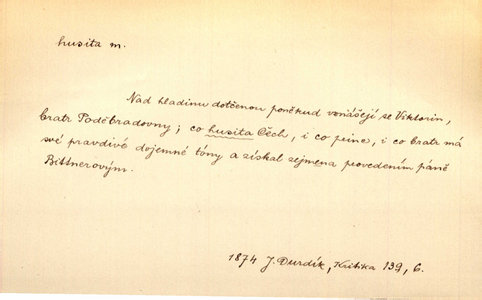 husita m.
Nad hladinu dotčenou poněkud vznášejí se Viktorin,
bratr Poděbradovny; co husita Čech, i co pine, i co bratr má
své pravdivé dojemné tóny a získal zejmena provedením páně
Bittnerovým.
1874 J. Durdík, Kritika 139, 6.